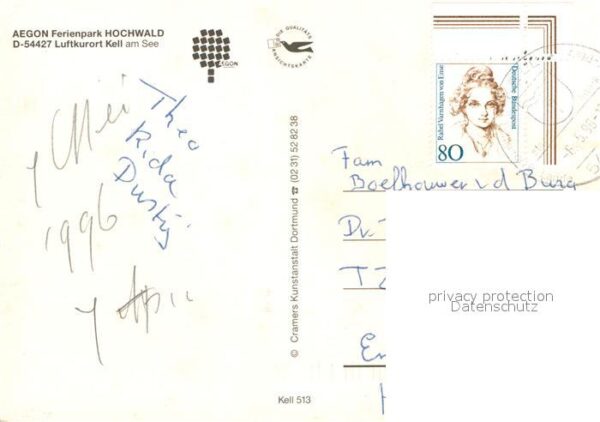 AEGON Ferienpark HOCHWALD
D-54427 Luftkurort Kell am See
AEGON
DIE QUALITÄTS
ANSICHTSKARTE
Mei
1996
7 Apri
Theo
Rida
Dusty
© Cramers Kunstanstalt Dortmund ☎ (02 31) 52 82 38
Kell 513
Rahel Varnhagen von Ense
Deutsche Bundespost
80
Fam
Boelhouwer v d Burg
Dr.
privacy protection
Datenschutz